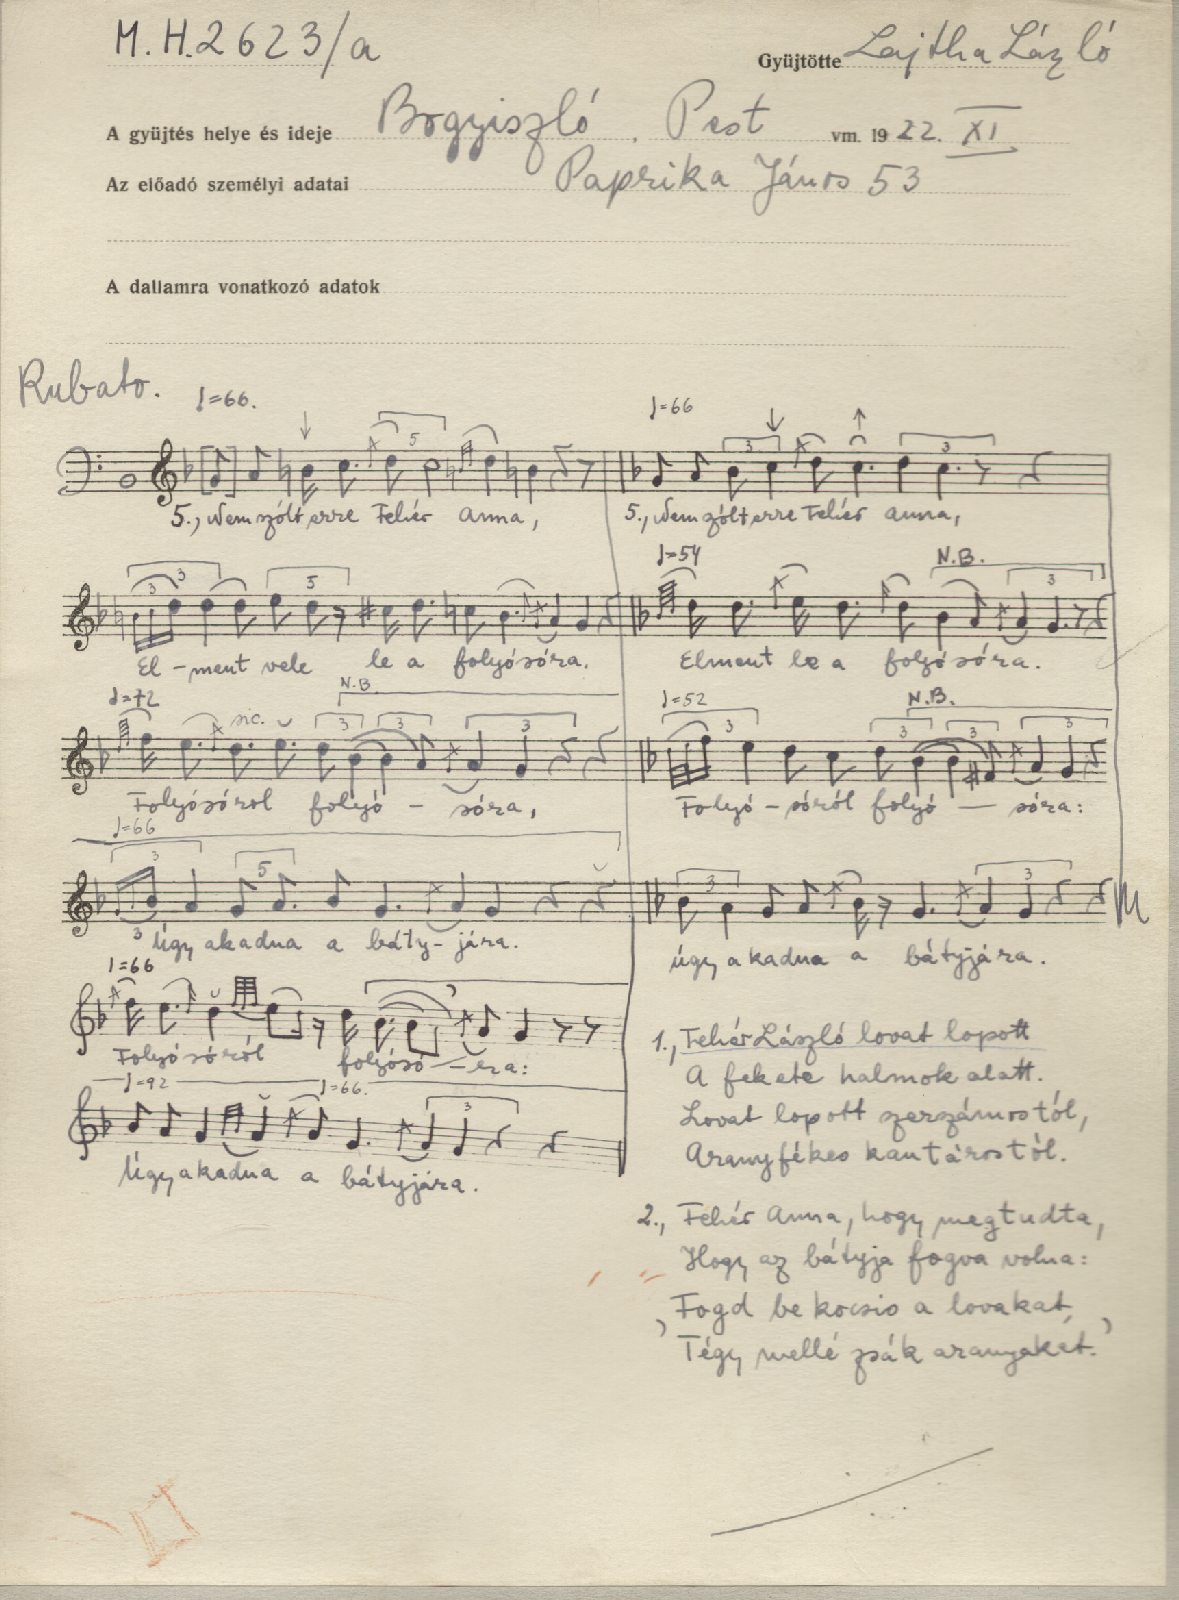 M.H.2623/a
Gyüjtötte Lajtha László
A gyüjtés helye és ideje Bogyiszló, Pest vm. 1922. XI
Az előadó személyi adatai Paprika János 53
A dallamra vonatkozó adatok
Rubato. ♩=66.
♩=66
5
3
3
5., Nem szólt erre Fehér Anna,
5., Nem szólt erre Fehér Anna,
♩=54
N.B.
3
3
5
3
El-ment vele le a folyósóra.
Elment le a folyósóra.
♩=72
sic.
N.B.
♩=52
N.B.
3
3
3
3
3
3
3
Folyósóról folyó-sóra,
Folyó-sóról folyó—sóra:
♩=66
3
5
3
3
3
Úgy akadna a báty-jára.
úgy akadna a bátyjára.
♩=66
Folyósóról folyósó—ra:
♩=92
♩=66.
3
Úgy akadna a bátyjára.
1., Fehér László lovat lopott
A fekete halmok alatt.
Lovat lopott szerzámostól,
Aranyfékes kantárostól.
2., Fehér Anna, hogy megtudta,
Hogy az bátyja fogva volna:
Fogd be kocsis a lovakat,
Tégy mellé zsák aranyakat.